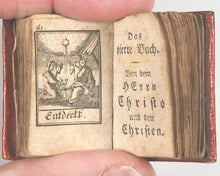 61.
Entdeckt.
Das
vierte Buch.
Von dem
HErrn
Christo
und den
Christen.